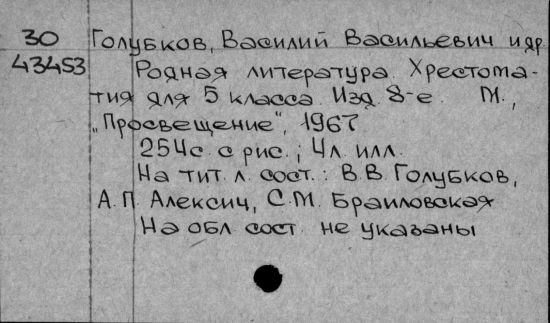 30 Голубков, Василий Васильевич и др.
43453 Родная литература. Хрестома-
тия для 5 класса. Изд. 8-е. М.,
„Просвещение", 1967
254с. с рис.; 4л. илл.
На тит. л. сост.: В.В. Голубков,
А.П. Алексич, С.М. Браиловская
На обл. сост. не указаны